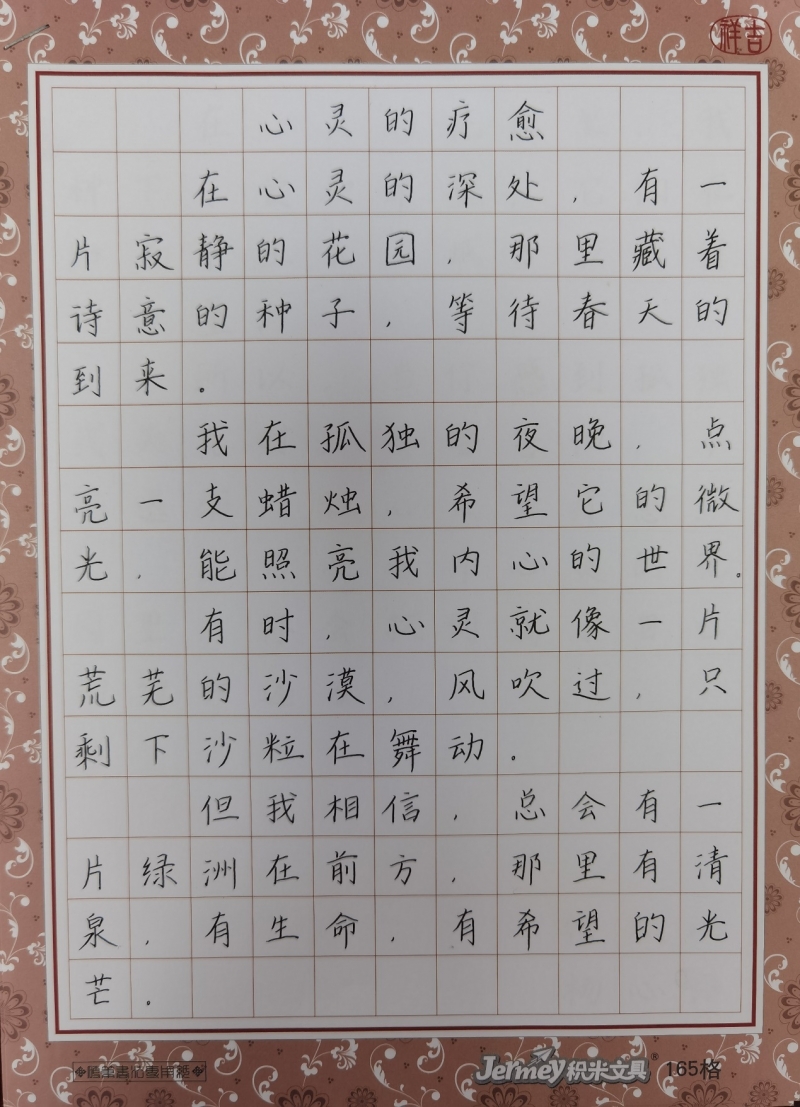 吉祥
心灵的疗愈
在心灵的深处，有一
片寂静的花园，那里藏着
诗意的种子，等待春天的
到来。
我在孤独的夜晚，点
亮一支蜡烛，希望它的微
光，能照亮我内心的世界。
有时，心灵就像一片
荒芜的沙漠，风吹过，只
剩下沙粒在舞动。
但我相信，总会有一
片绿洲在前方，那里有清
泉，有生命，有希望的光
芒。
Jermey积米文具® 165格